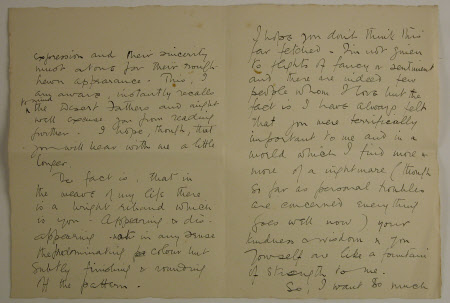 expression and their sincerity
must atone for their rough-
hewn appearance. This, I
am aware, instantly recalls
to mind
the Desert Fathers and might
well excuse you from reading
further. I hope, though, that
you will bear with me a little
longer.
The fact is that in
the weave of my life there
is a bright riband which
is you. Appearing & dis-
appearing not in any sense
the predominating colour but
subtly finding & rounding
off the pattern.
I hope you don't think this
far fetched. I'm not given
to flights of fancy or sentiment
and there are indeed few
people whom I love but the
fact is I have always felt
that you were terrifically
important to me and in a
world which I find more &
more of a nightmare (though
so far as personal troubles
are concerned everything
goes well now) your
kindness & wisdom & you
yourself are like a fountain
of strength to me.
So, I want so much